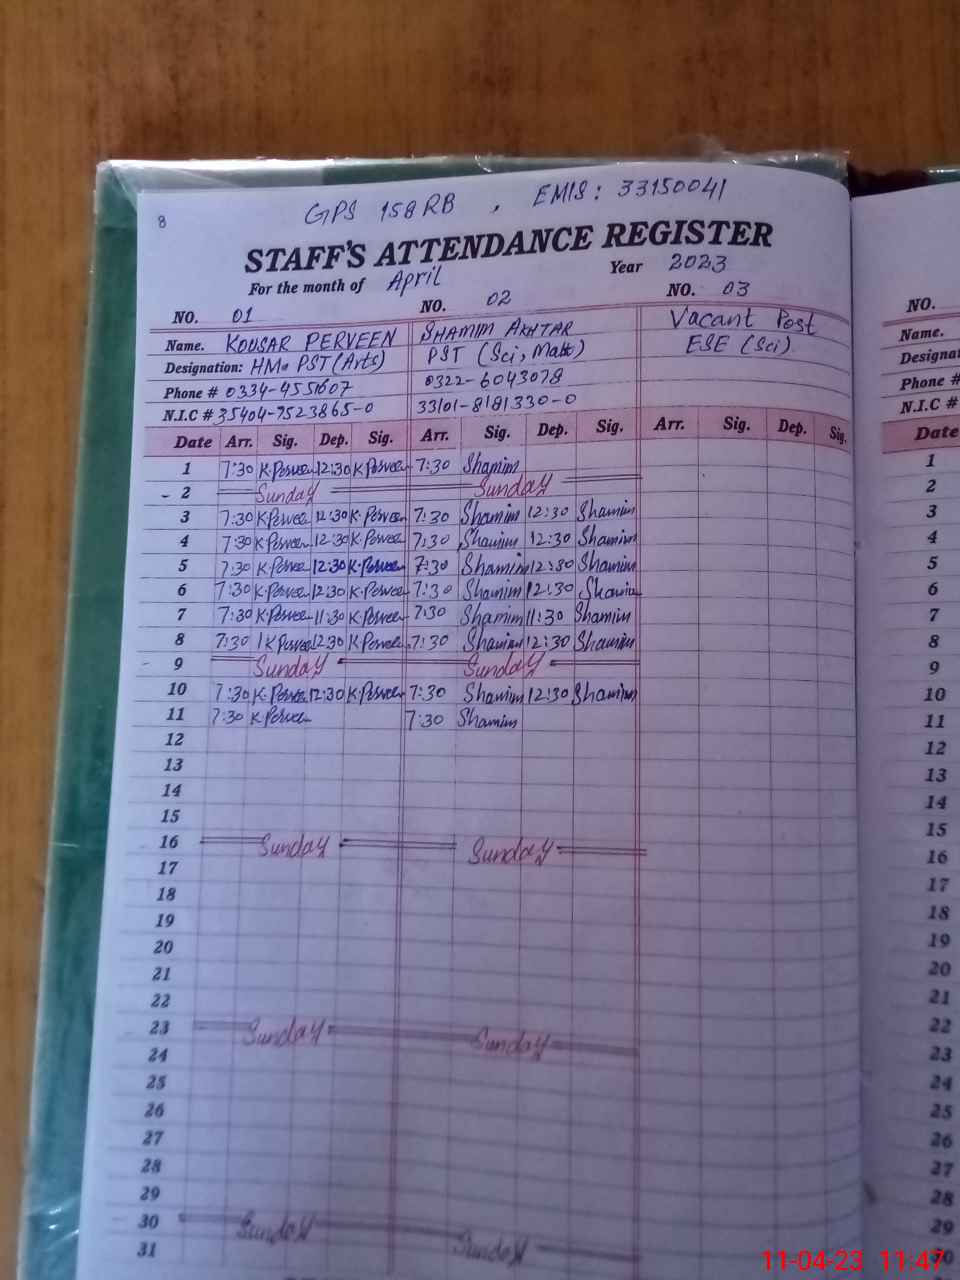 8
GPS 158 RB , EMIS: 33150041
STAFF'S ATTENDANCE REGISTER
For the month of April Year 2023
NO. 01 NO. 02 NO. 03
Name. KOUSAR PERVEEN SHAMIM AKHTAR Vacant Post
Designation: HM. PST (Arts) PST (Sci, Math) ESE (Sci)
Phone # 0334-4551607 0322-6043078
N.I.C # 35404-7523865-0 33101-8181330-0
Date Arr. Sig. Dep. Sig. Arr. Sig. Dep. Sig. Arr. Sig. Dep. Sig.
1 7:30 K.Perveen 12:30 K.Perveen 7:30 Shamim
2 Sunday Sunday
3 7:30 K.Perveen 12:30 K.Perveen 7:30 Shamim 12:30 Shamim
4 7:30 K.Perveen 12:30 K.Perveen 7:30 Shamim 12:30 Shamim
5 7:30 K.Perveen 12:30 K.Perveen 7:30 Shamim 12:30 Shamim
6 7:30 K.Perveen 12:30 K.Perveen 7:30 Shamim 12:30 Shamim
7 7:30 K.Perveen 11:30 K.Perveen 7:30 Shamim 11:30 Shamim
8 7:30 K.Perveen 12:30 K.Perveen 7:30 Shamim 12:30 Shamim
9 Sunday Sunday
10 7:30 K.Perveen 12:30 K.Perveen 7:30 Shamim 12:30 Shamim
11 7:30 K.Perveen 7:30 Shamim
12
13
14
15
16 Sunday Sunday
17
18
19
20
21
22
23 Sunday Sunday
24
25
26
27
28
29
30 Sunday Sunday
31
NO.
Name.
Designa
Phone #
N.I.C #
Date
1
2
3
4
5
6
7
8
9
10
11
12
13
14
15
16
17
18
19
20
21
22
23
24
25
26
27
28
29
30
11-04-23 11:47